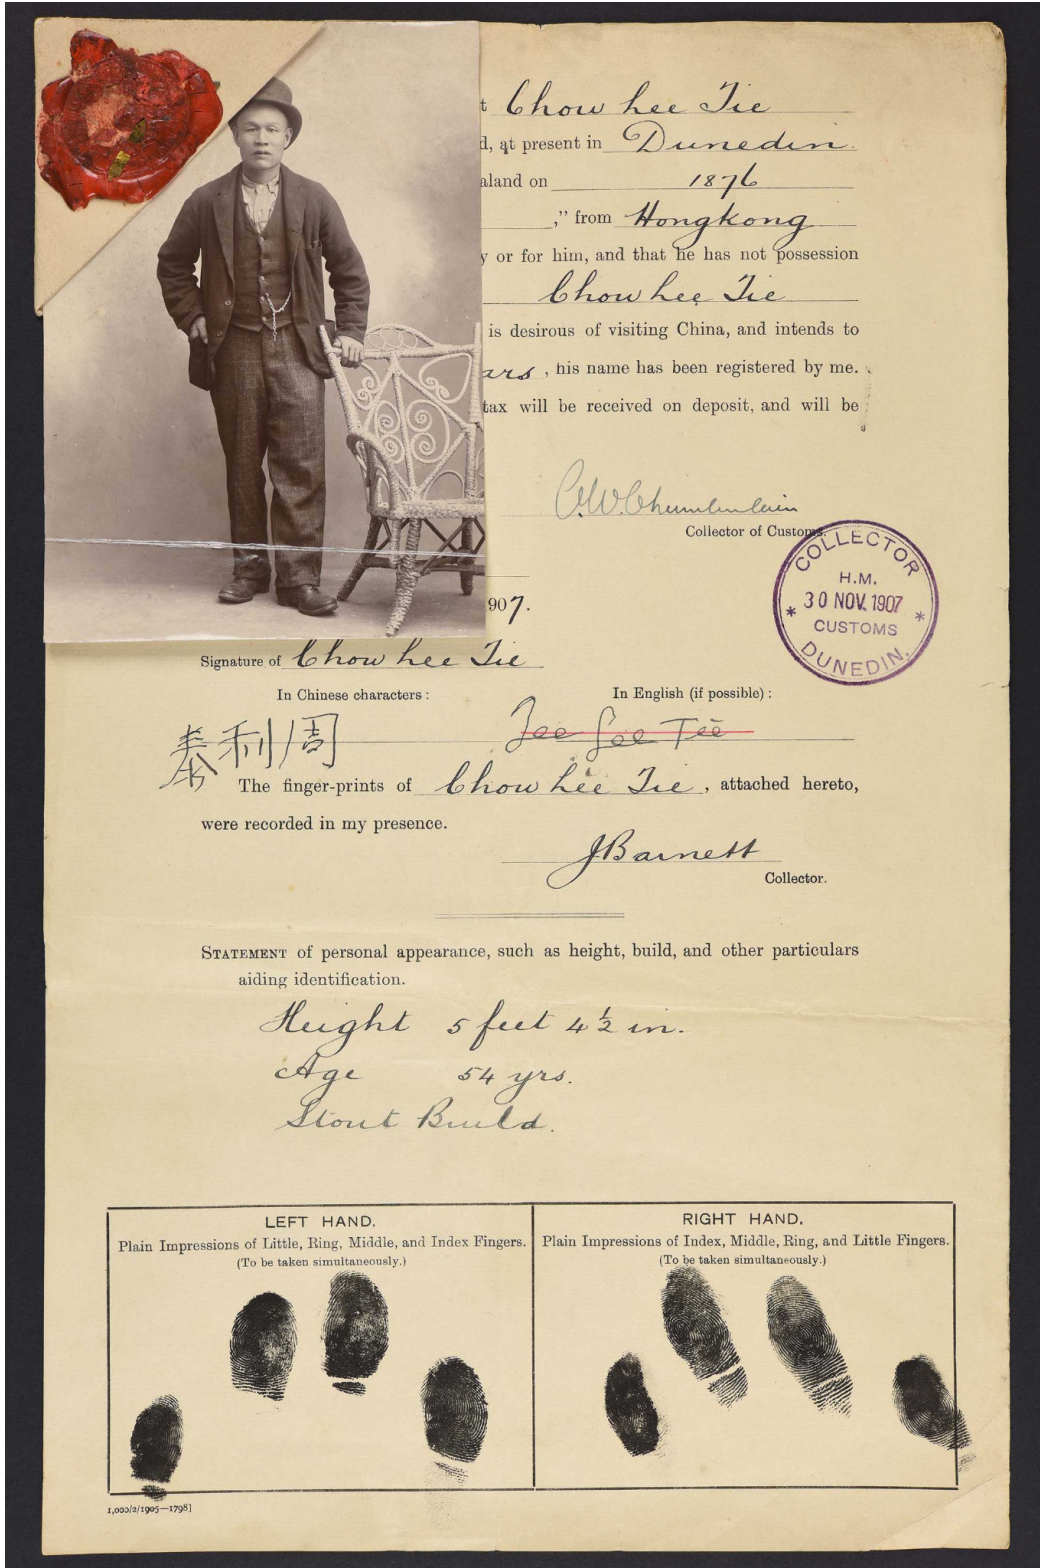 t Chow Lee Tie
d, at present in Dunedin.
aland on 1876
," from Hongkong
y or for him, and that he has not possession
Chow Lee Tie
is desirous of visiting China, and intends to
ars, his name has been registered by me.
tax will be received on deposit, and will be
C.W. Chamberlain
Collector of Customs.
COLLECTOR
H.M.
* 30 NOV. 1907 *
CUSTOMS
DUNEDIN.
907.
Signature of Chow Lee Tie
In Chinese characters: In English (if possible):
泰利周 Zee Lee Tee
The finger-prints of Chow Lee Tie, attached hereto,
were recorded in my presence.
J Barnett
Collector.
STATEMENT of personal appearance, such as height, build, and other particulars
aiding identification.
Height 5 feet 4 1/2 in.
Age 54 yrs.
Stout Build.
LEFT HAND. RIGHT HAND.
Plain Impressions of Little, Ring, Middle, and Index Fingers. Plain Impressions of Index, Middle, Ring, and Little Fingers.
(To be taken simultaneously.) (To be taken simultaneously.)
1,000/2/1905—1798]